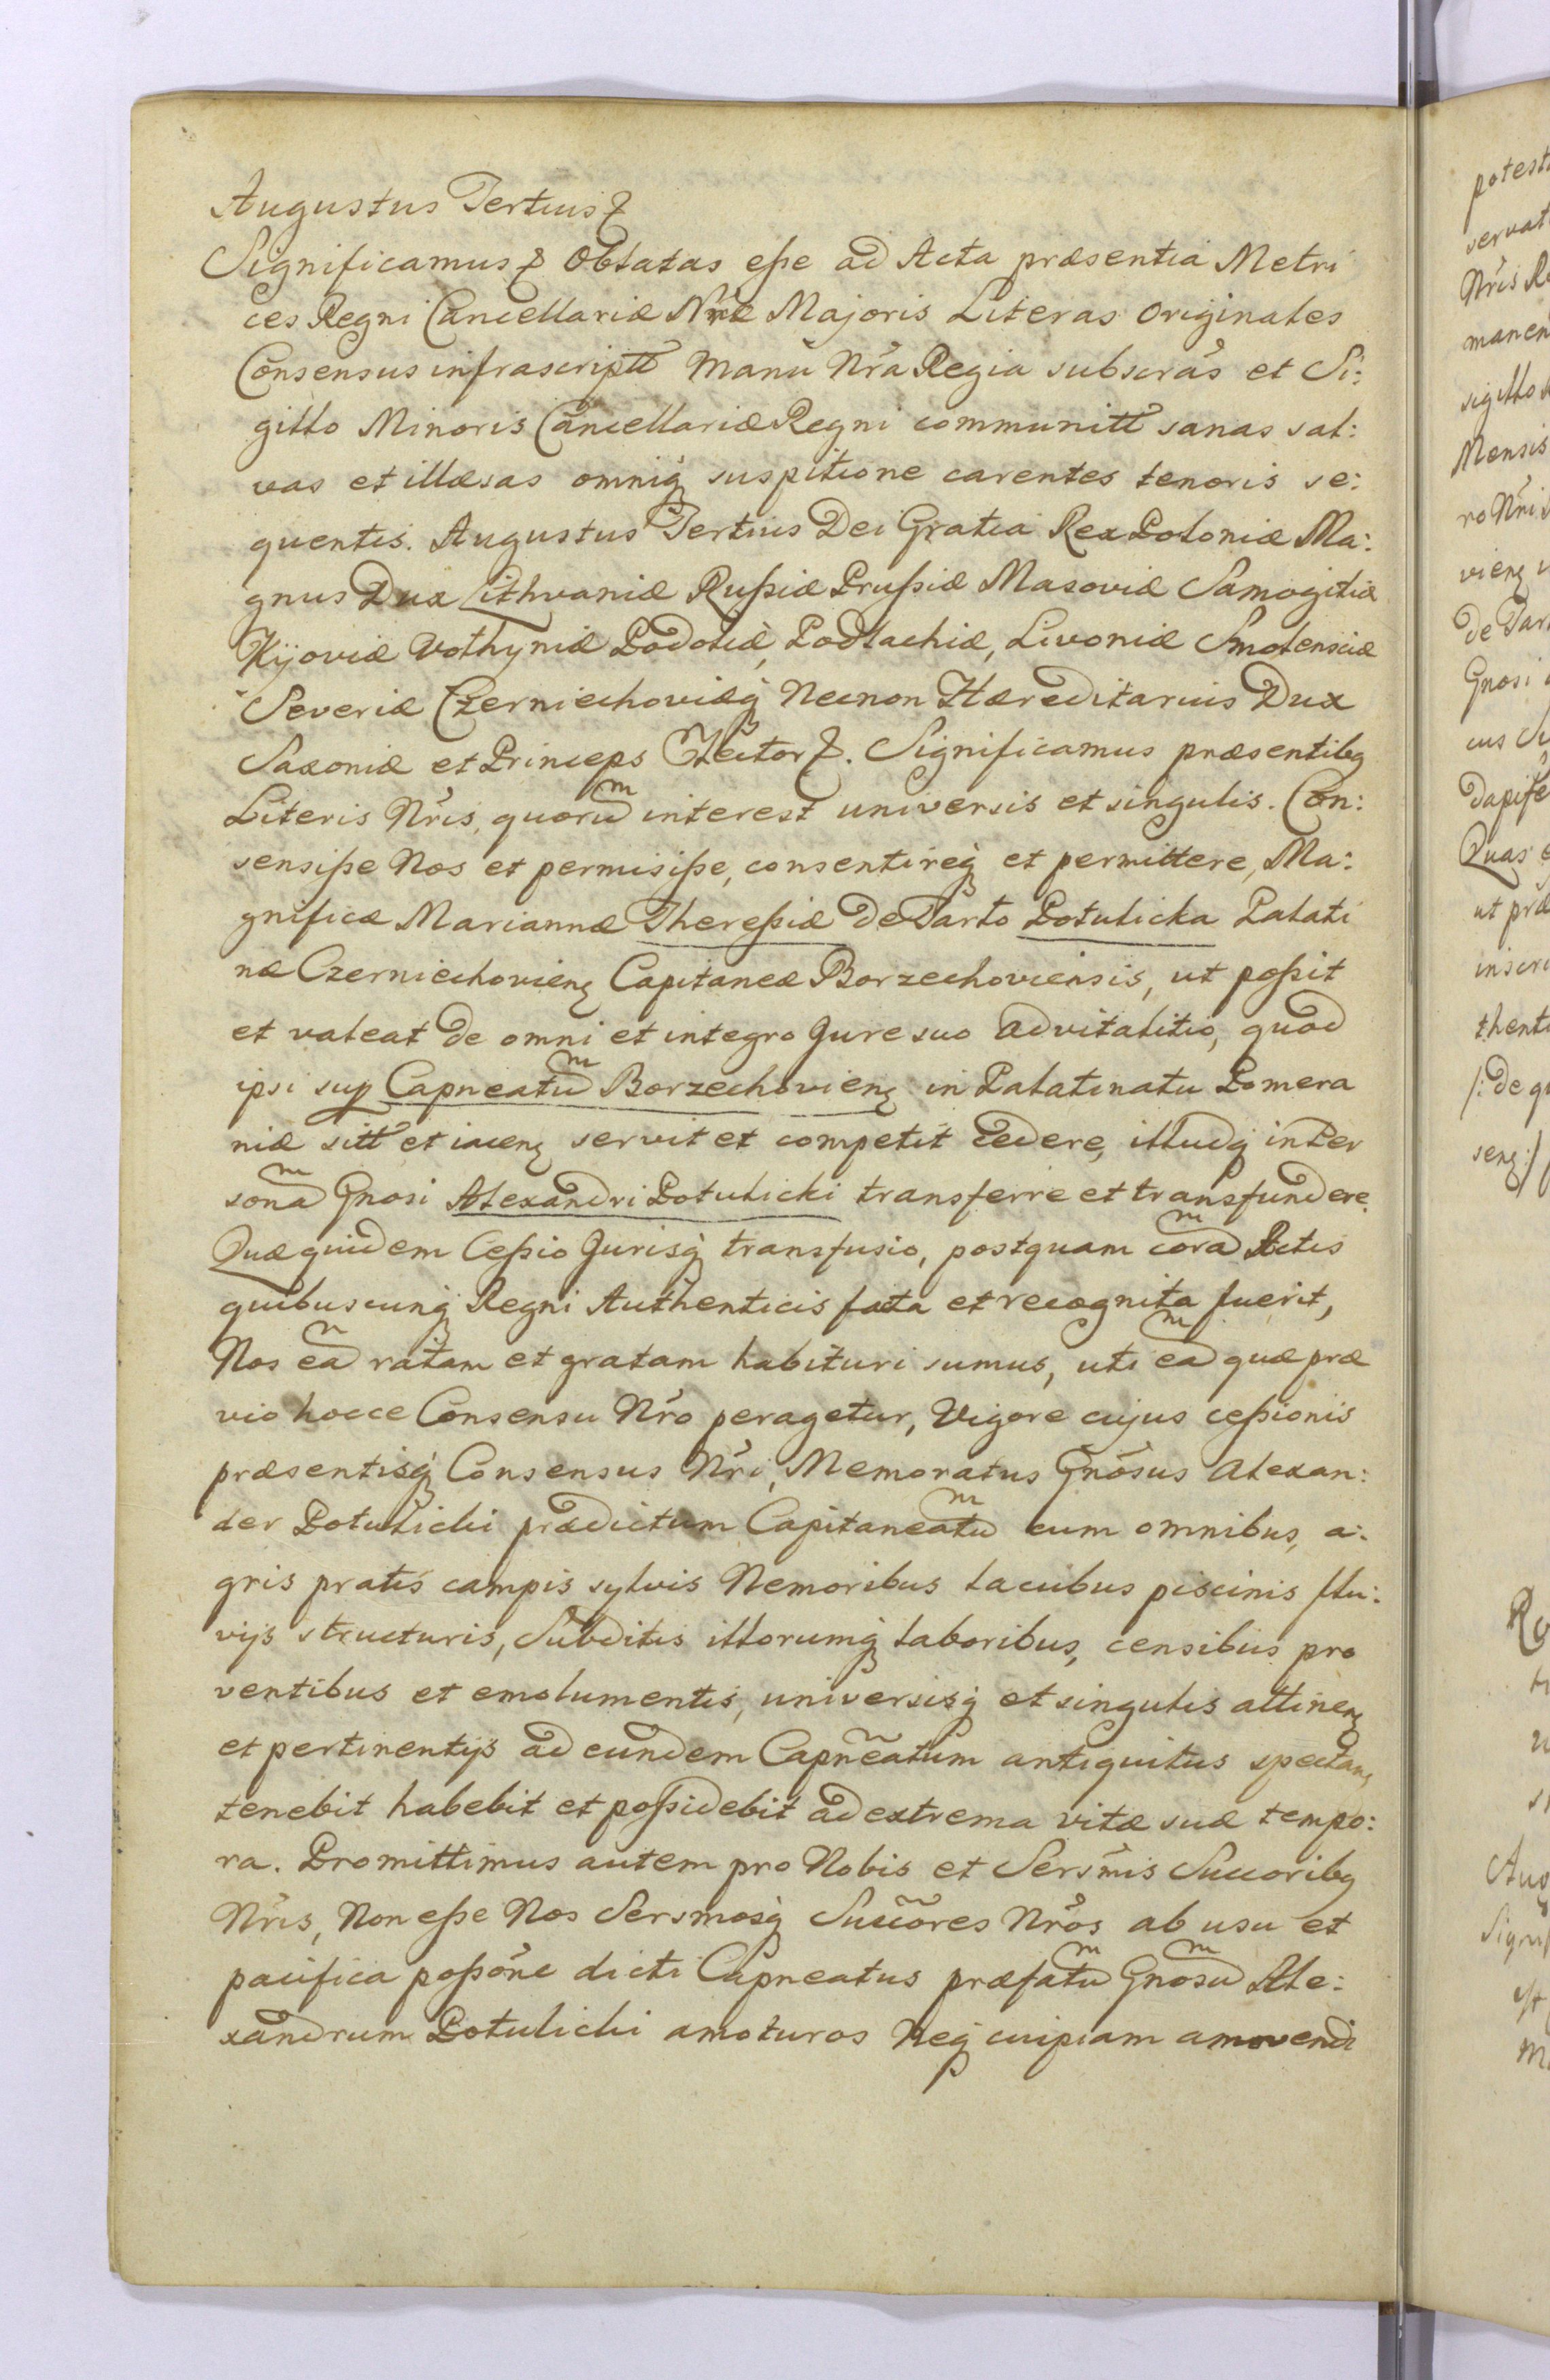 Augustus Tertius &
Significamus & Oblatas eſse ad Acta præsentia Metri
ces Regni Cancellariæ Nræ Majoris Literas Originales
Consensus infrascriptt Manu Nra Regia subscras et Si:
gillo Minoris Cancellariæ Regni communitt sanas sal:
vas et illæsas omniq suspitione carentes tenoris se:
quentis. Augustus Tertius Dei Gratia Rex Poloniæ Ma:
gnus Dux Lithvaniæ Ruſsiæ Pruſsiæ Masoviæ Samogitiæ
Kijoviæ Volhyniæ Podoliæ, Podlachiæ, Livoniæ Smolensciæ
Severiæ Czerniechoviæq Necnon Hæreditarius Dux
Saxoniæ et Princeps Elector &. Significamus præsentibq
Literis Nris, quorum interest universis et singulis. Con:
sensiſse Nos et permisiſse, consentireq et permittere, Ma:
gnificæ Mariannæ Thereſsiæ de Tarło Potulicka Palati
næ Czerniechovienȝ Capitaneæ Borzechoviensis, ut poſsit
et valeat de omni et integro Jure suo advitalitio, quod
ipsi sup Capneatum Borzechovienȝ in Palatinatu Pomera
niæ sitt et iacenȝ servit et competit cedere, illudq in Per
sonam Gnosi Alexandri Potulicki transferre et transfundere.
Quæ quidem Ceſsio Jurisq transfusio, postquam coram Actis
quibuscunq Regni Authenticis facta et recognita fuerit,
Nos eam ratam et gratam habituri sumus, uti eam quæ præ
vio hocce Consensu Nro peragetur, Vigore cujus ceſsionis
præsentisq Consensus Nri, Memoratus Gnosus Alexan:
der Potulicki prædictum Capitaneatum cum omnibus, a:
gris pratis campis sylvis Nemoribus lacubus piscinis flu:
vijs structuris, Subditis illorumq laboribus, censibus pro
ventibus et emolumentis, universisq et singulis attinenȝ
et pertinentijs ad eundem Capneatum antiquitus spectanȝ
tenebit habebit et poſsidebit ad extrema vitæ suæ tempo:
ra. Promittimus autem pro Nobis et Sersmis Succoribq
Nris, Non eſse Nos Sersmosq Succores Nros ab usu et
pacifica poſsone dicti Capneatus præfatum Gnosum Ale:
xandrum Potulicki amoturos Neq cuipiam amovendi